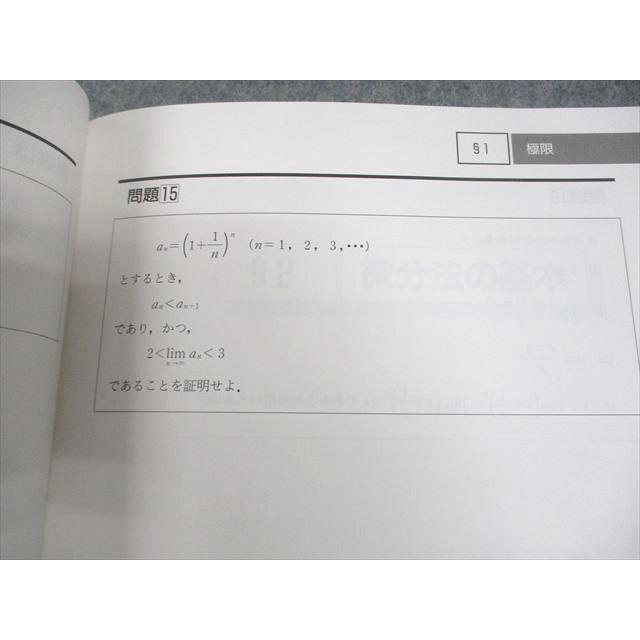 §1 極限
問題15
aₙ=(1+1/n)ⁿ (n=1, 2, 3, …)
とするとき,
aₙ<aₙ₊₁
であり, かつ,
2<lim_{n→∞} aₙ<3
であることを証明せよ.
§2 微分法の基本